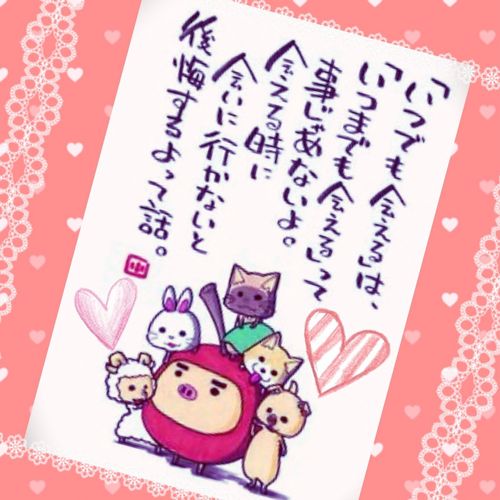 「いつでも会える」は、
「いつまでも会える」って
事じゃあないよ。
会える時に
会いに行かないと
後悔するよって話。